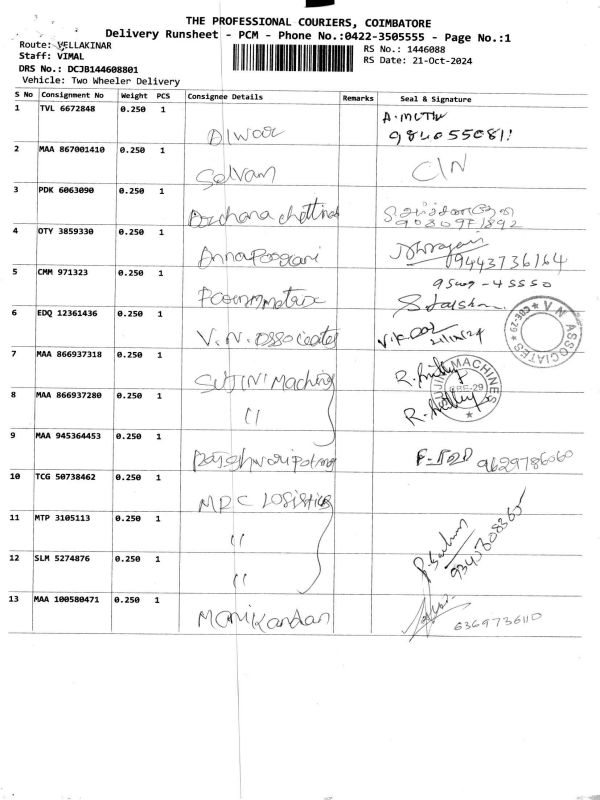 THE PROFESSIONAL COURIERS, COIMBATORE
Delivery Runsheet - PCM - Phone No.:0422-3505555 - Page No.:1
Route: VELLAKINAR
RS No.: 1446088
Staff: VIMAL
RS Date: 21-Oct-2024
DRS No.: DCJB144608801
Vehicle: Two Wheeler Delivery
S No Consignment No Weight PCS Consignee Details Remarks Seal & Signature
1 TVL 6672848 0.250 1
2 MAA 867001410 0.250 1 Selvam
3 PDK 6063090 0.250 1
4 OTY 3859330 0.250 1 09443736164
5 CMM 971323 0.250 1
6 EDQ 12361436 0.250 1 V.N. Associates 21/10/24
V N ASSOCIATES CBE-29
7 MAA 866937318 0.250 1 SUJINI Machines
8 MAA 866937280 0.250 1 "
9 MAA 945364453 0.250 1 9629786060
10 TCG 50738462 0.250 1 MRC LOGISTICS
11 MTP 3105113 0.250 1 "
12 SLM 5274876 0.250 1 "
13 MAA 100580471 0.250 1 Manikandan 6369736110